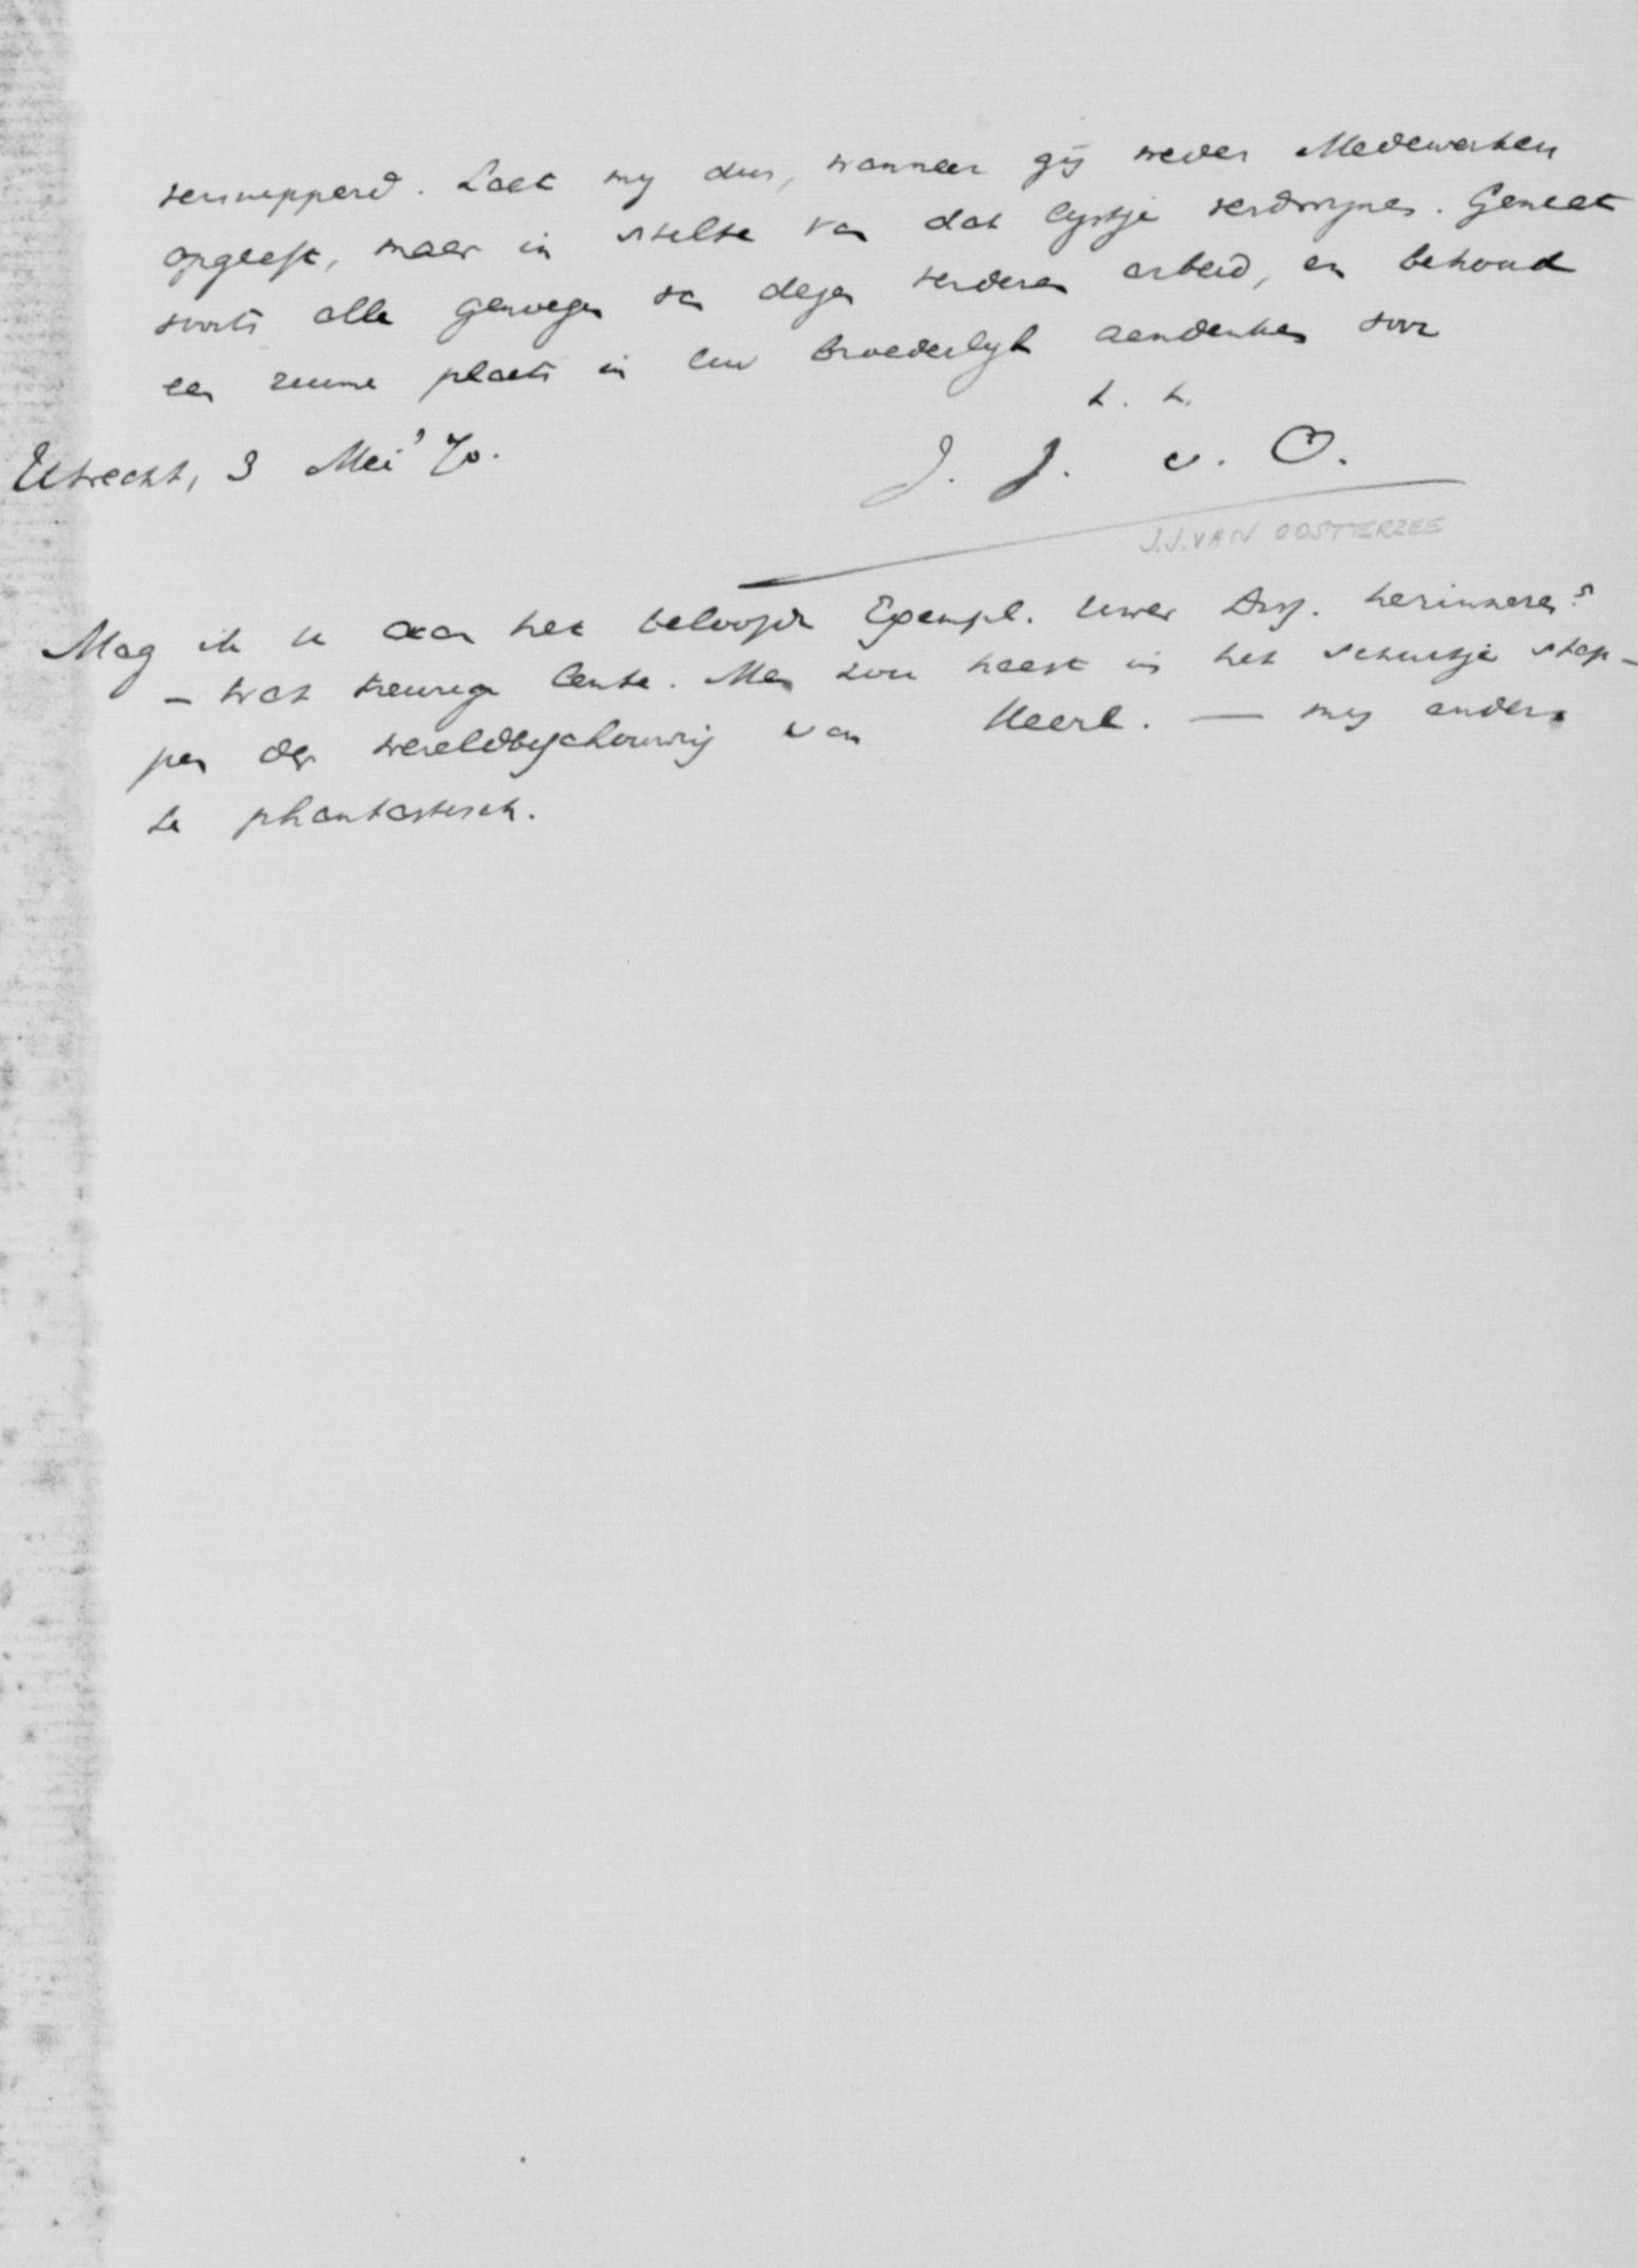 versnipperd. Laat my dus, wanneer gij weder Medewerkers
opgeeft, maar in stilte van dat lystje verdwynen. Geniet
voorts alle genoegen van dezen verderen arbeid, en behoud
een ruime plaats in Uw broederlyk aandenken voor
t. t.
Utrecht, 3 Mei '70.
J. J. v. O.
J.J. VAN OOSTERZEE
Mag ik U aan het beloofde Exempl. Uwer Diss. herinneren?
- Wat treurige lente. Men zou haast in het schuitje stap-
pen der wereldbeschouwing van Heerl. — my anders
te phantastisch.